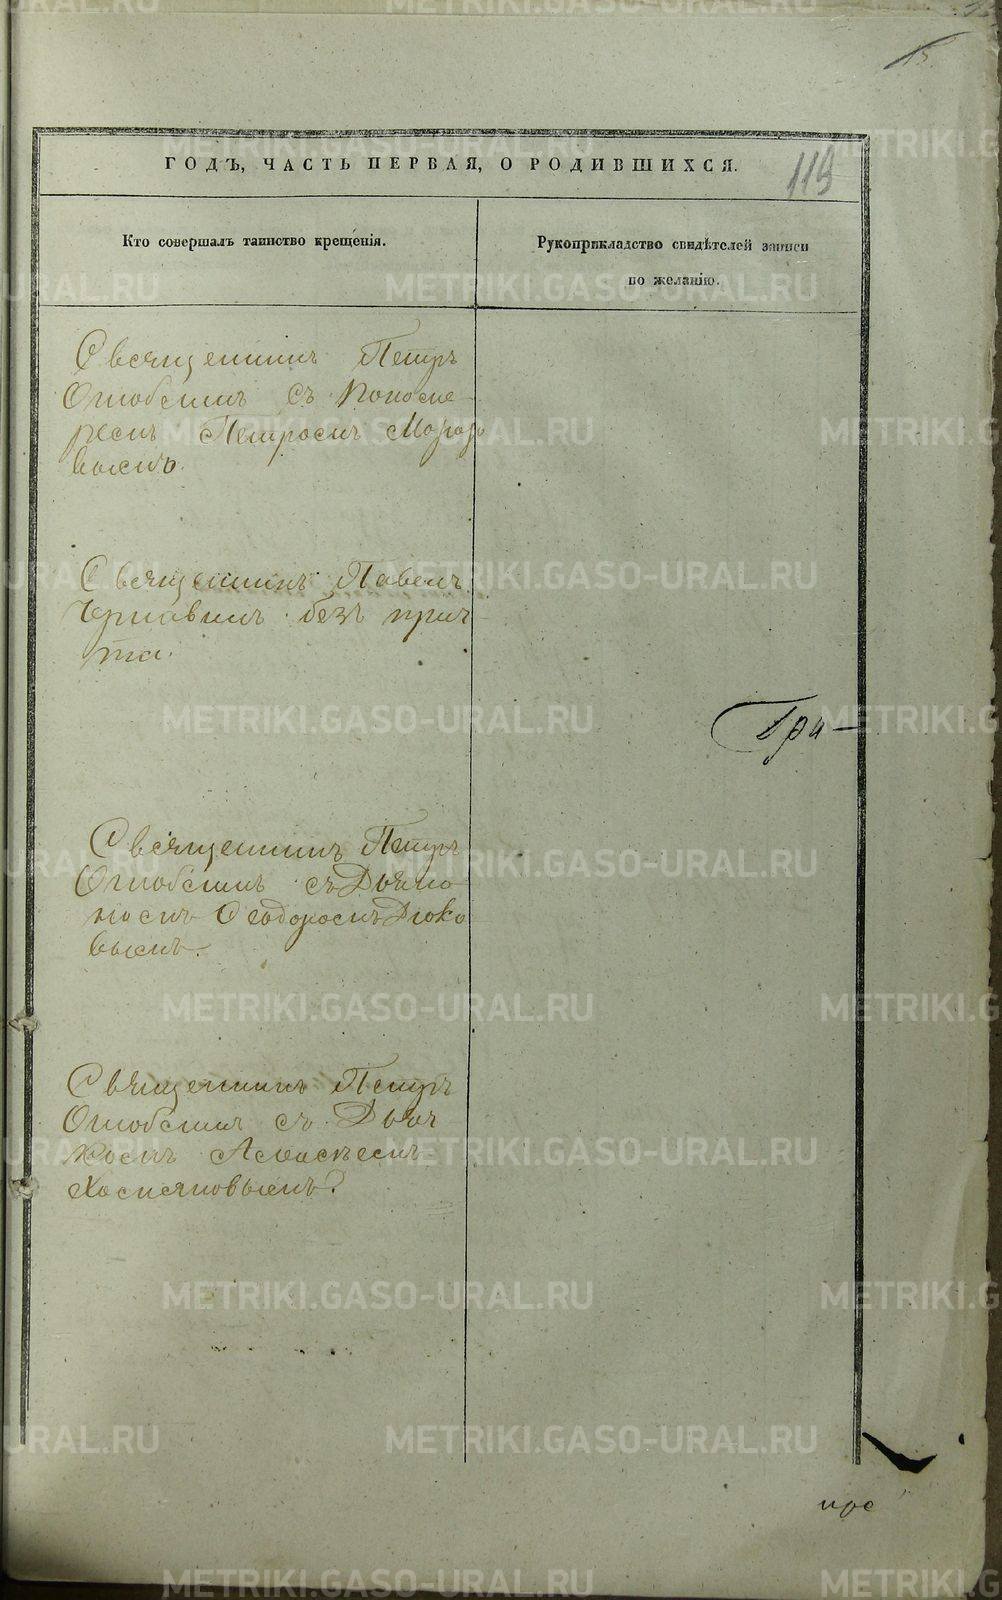 15.
ГОДЪ, ЧАСТЬ ПЕРВАЯ, О РОДИВШИХСЯ.
119
Кто совершалъ таинство крещенія.
Рукоприкладство свидѣтелей записи
по желанію.
Священникъ Петръ
съ Пономе-
ремъ Петромъ Морозо
вымъ.
Священникъ Павелъ
Чернавинъ безъ прич-
та.
Гри-
Священникъ Петръ
съ Дьяко-
номъ Ѳеодоромъ Дюко
вымъ.
Священникъ Петръ
съ Дьяч
комъ
пре
METRIKI.GASO-URAL.RU